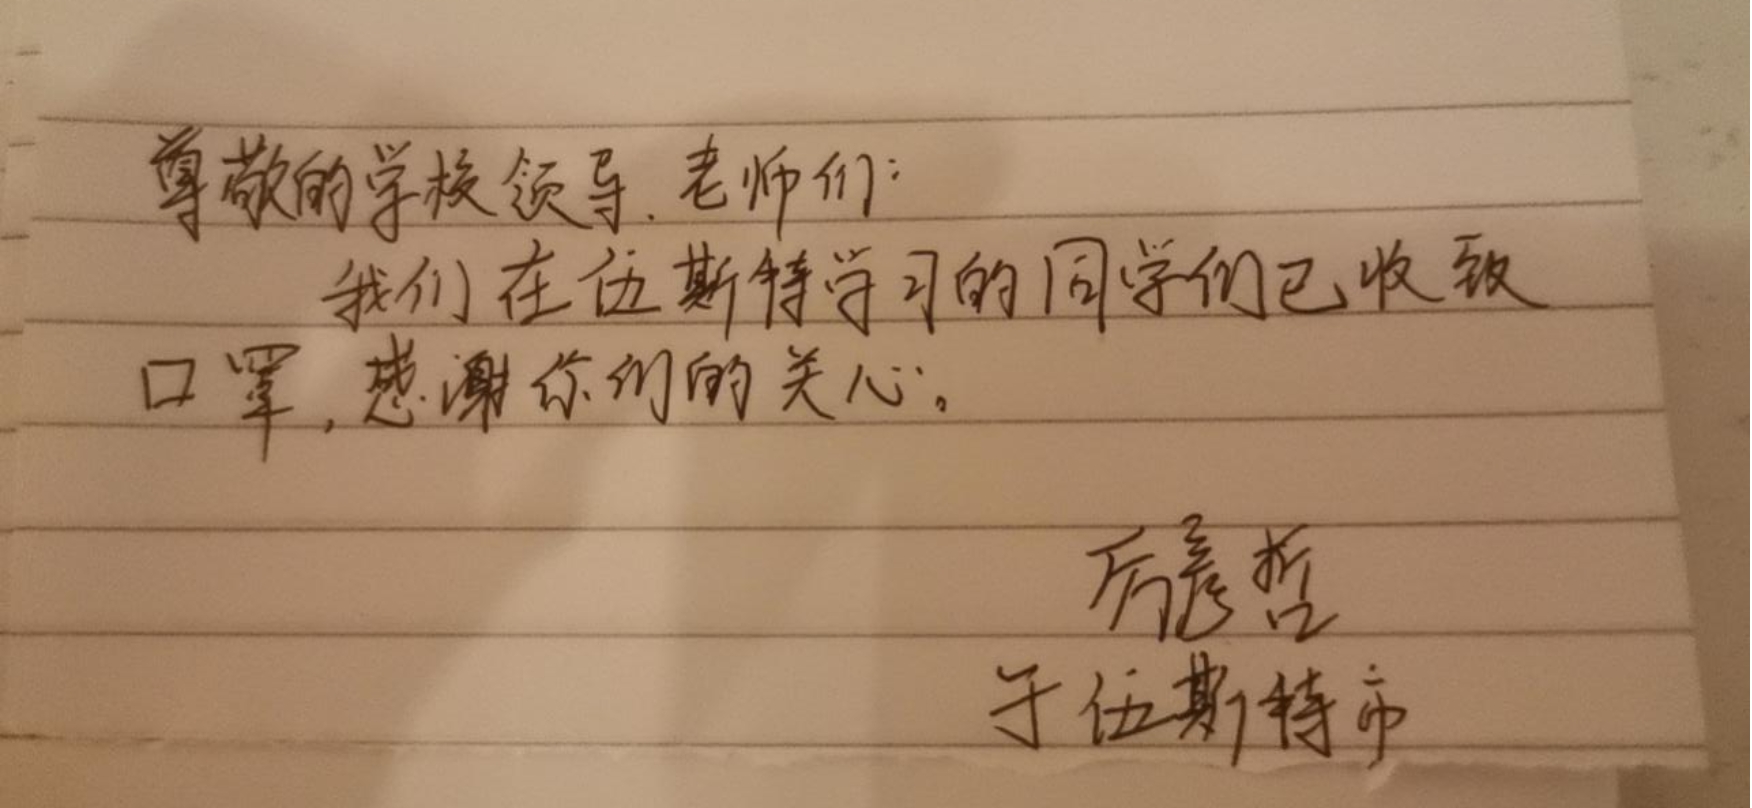 尊敬的学校领导、老师们:
我们在伍斯特学习的同学们已收致
口罩,感谢你们的关心。
哲
于伍斯特市